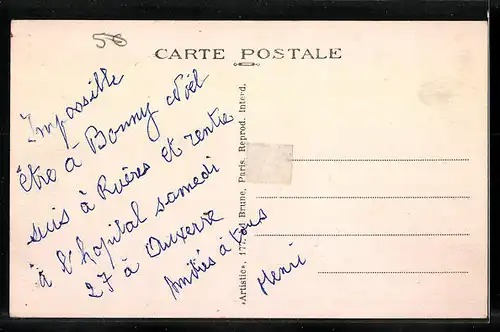 56
CARTE POSTALE
Impossible
être à Bonny Noël
suis à Rivères et rentre
à l'hopital samedi
27 à Auxerre
Amitiés à tous
Henri
«Artistic», 177, Bd Brune, Paris. Reprod. Interd.